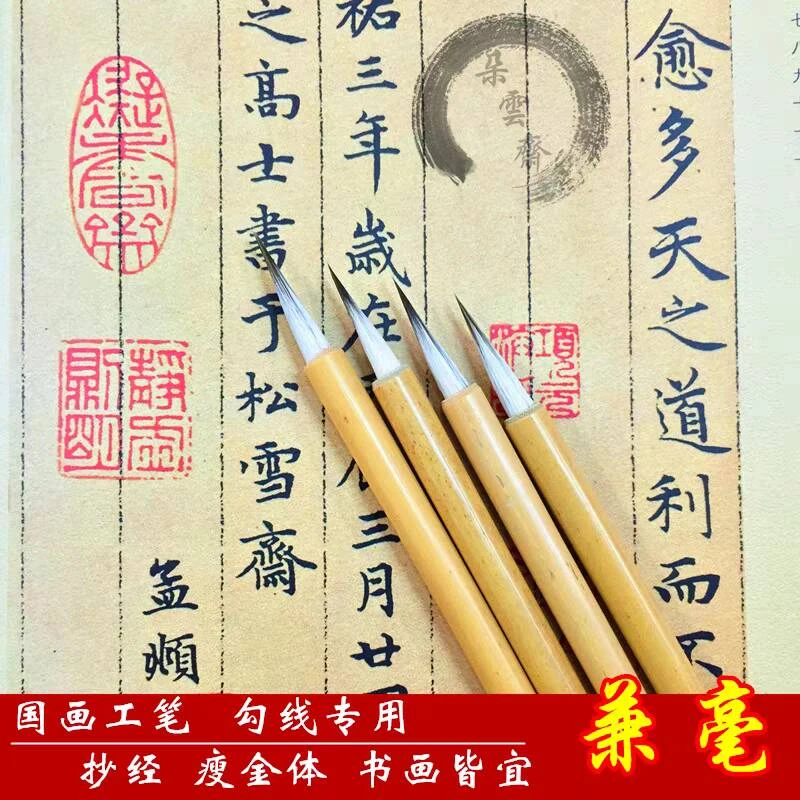 愈多天之道利而不
朵雲齋
祐三年歲在
三月廿
之高士書于松雪齋
孟頫
国画工笔 勾线专用
抄经 瘦金体 书画皆宜
兼毫